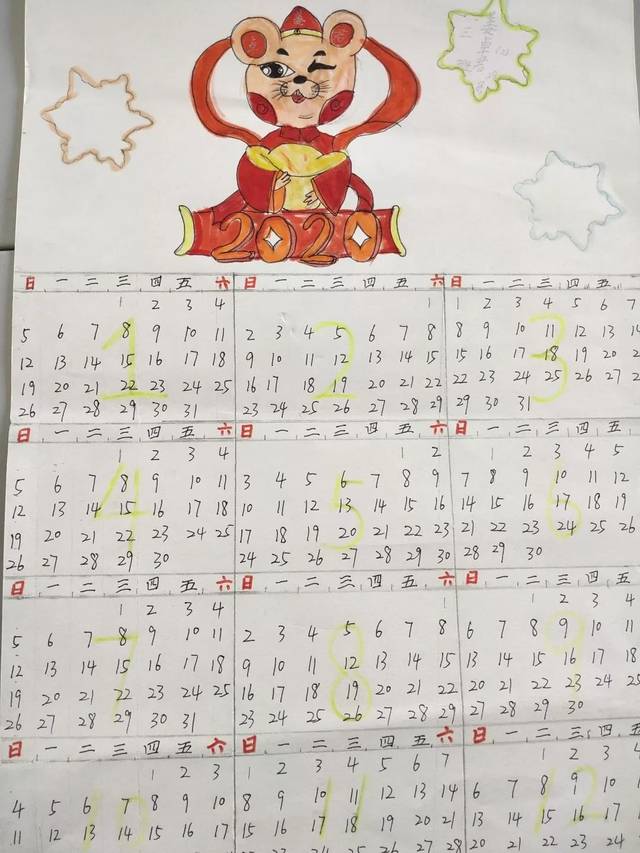 2020
日 一 二 三 四 五 六
1 2 3 4
5 6 7 8 9 10 11
12 13 14 15 16 17 18
19 20 21 22 23 24 25
26 27 28 29 30 31
1
日 一 二 三 四 五 六
1
2 3 4 5 6 7 8
9 10 11 12 13 14 15
16 17 18 19 20 21 22
23 24 25 26 27 28 29
2
日 一 二 三 四 五
1 2 3 4 5 6 7
8 9 10 11 12 13 14
15 16 17 18 19 20
22 23 24 25 26 27
29 30 31
3
日 一 二 三 四 五 六
1 2 3 4
5 6 7 8 9 10 11
12 13 14 15 16 17 18
19 20 21 22 23 24 25
26 27 28 29 30
4
日 一 二 三 四 五 六
1 2
3 4 5 6 7 8 9
10 11 12 13 14 15 16
17 18 19 20 21 22 23
24 25 26 27 28 29 30
5
日 一 二 三 四 五
1 2 3 4 5
7 8 9 10 11 12
14 15 16 17 18 19
21 22 23 24 25 26
28 29 30
6
日 一 二 三 四 五 六
1 2 3 4
5 6 7 8 9 10 11
12 13 14 15 16 17 18
19 20 21 22 23 24 25
26 27 28 29 30 31
7
日 一 二 三 四 五 六
1
2 3 4 5 6 7 8
9 10 11 12 13 14 15
16 17 18 19 20 21 22
23 24 25 26 27 28 29
8
日 一 二 三 四 五
1 2 3 4
6 7 8 9 10 11
13 14 15 16 17 18
20 21 22 23 24 25
27 28 29 30
9
日 一 二 三 四 五 六
1 2 3
4 5 6 7 8 9 10
11 12 13 14 15 16 17
10
日 一 二 三 四 五 六
1 2 3 4 5 6 7
8 9 10 11 12 13 14
15 16 17 18 19 20 21
27 28
11
日 一 二 三 四 五
1 2 3 4
6 7 8 9 10
13 14 15 16 17 18
20 21 22 23 24
12